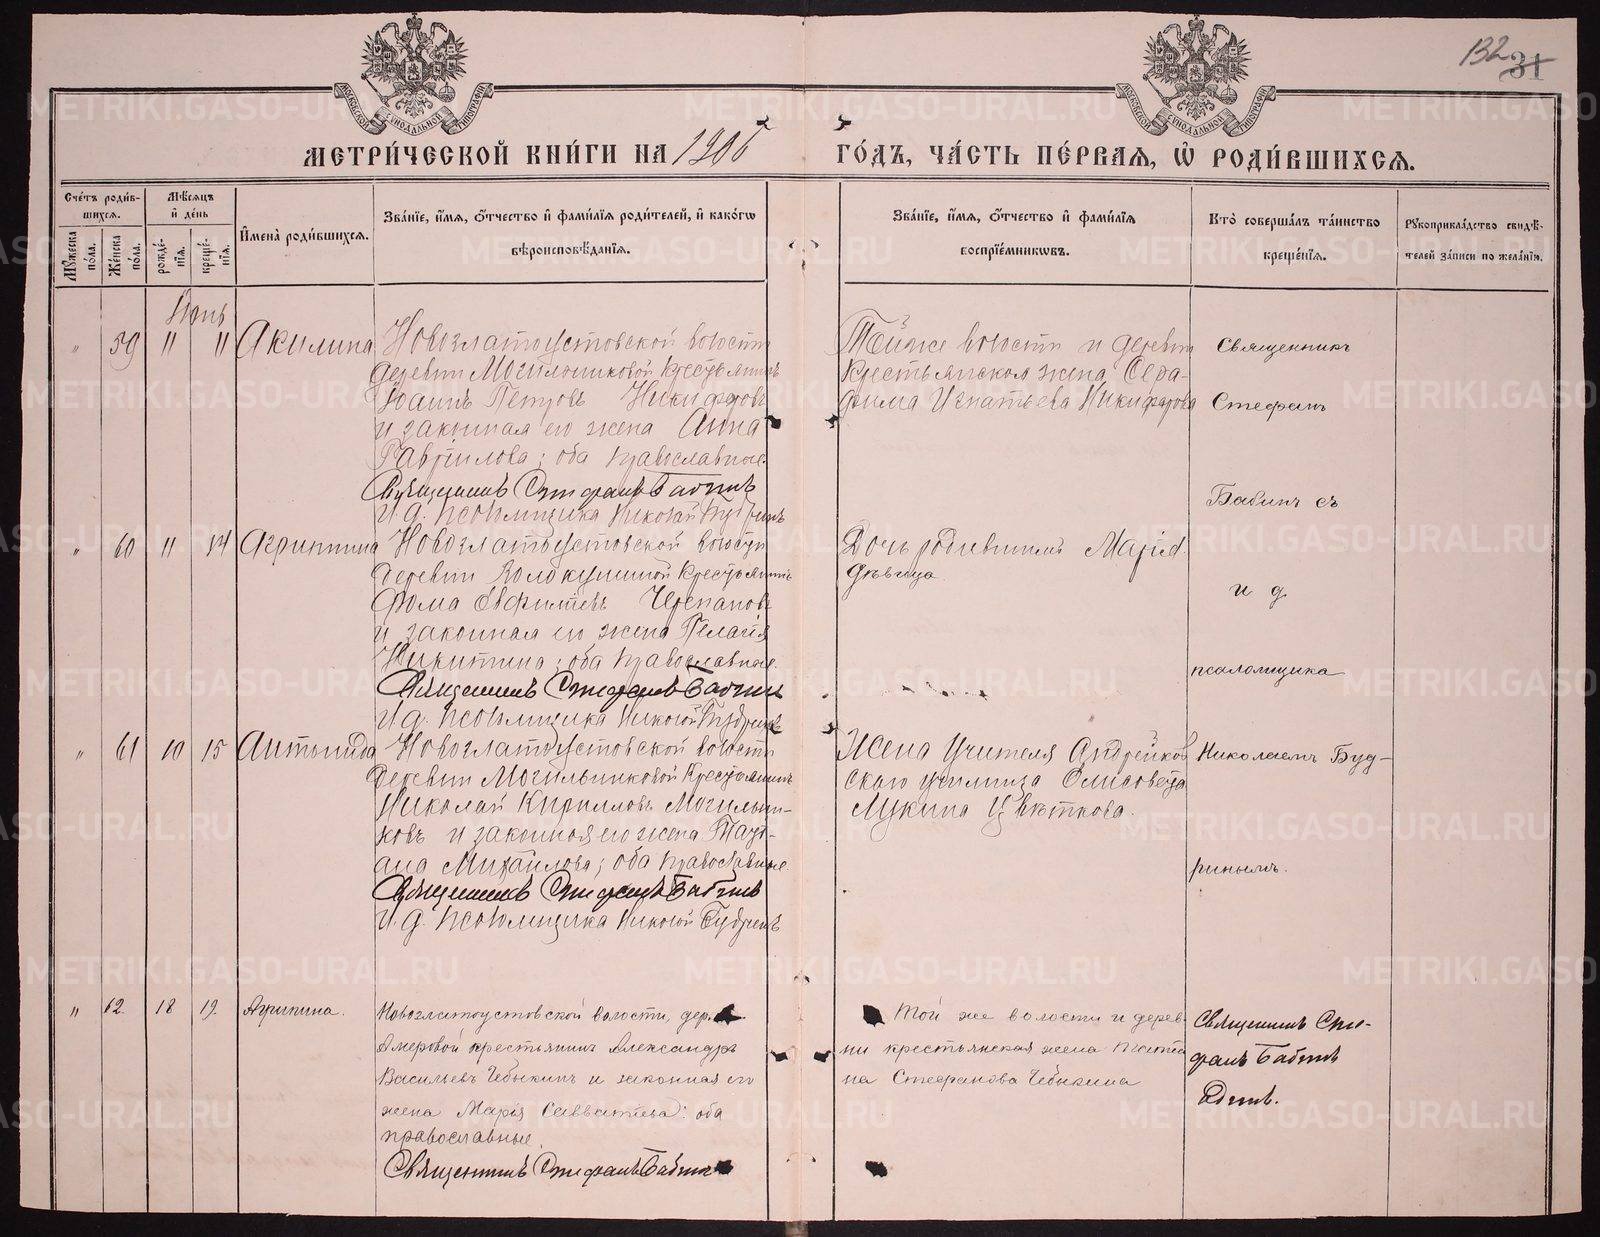 132 31
МОСКОВСКОЙ СѴНОДАЛЬНОЙ ТИПОГРАФІИ
МОСКОВСКОЙ СѴНОДАЛЬНОЙ ТИПОГРАФІИ
МЕТРИ́ЧЕСКОЙ КНИ́ГИ НА 1906
ГО́ДЪ, ЧА́СТЬ ПЕ́РВАЯ, Ѡ РОДИ́ВШИХСЯ.
Сче́тъ роди́в-
шихся.
Му́жеска по́ла.
Же́нска по́ла.
Мѣ́сяцъ
и де́нь
рожде́-
нія.
креще́-
нія.
Имена̀ роди́вшихся.
Зва́ніе, и́мя, о́тчество и фами́лія роди́телей, и како́гѡ
вѣроисповѣ́данія.
Зва́ніе, и́мя, о́тчество и фами́лія
воспріе́мникѡвъ.
Кто̀ соверша́лъ та́инство
креще́нія.
Рукоприкла́дство свидѣ́-
телей за́писи по жела́нію.
Іюнь
" 59 11 11 Акилина
Новозлатоустовской волости
деревни Могильниковой Крестьянинъ
Іоаннъ Петровъ Никифоровъ
и законная его жена Анна
Гавріилова; оба православные.
Священникъ Стефанъ Бабинъ
И. д. псаломщика Николай Будринъ
Той же волости и деревни
Крестьянская жена Сера-
фима Игнатьева Никифорова
Священникъ
Стефанъ
Бабинъ съ
и д.
псаломщика
Николаемъ Буд-
ринымъ.
" 60 11 14 Агриппина
Новозлатоустовской волости
деревни Колокушиной Крестьянинъ
Фома Евфиміевъ Черепановъ
и законная его жена Пелагія
Никитина; оба православные.
Священникъ Стефанъ Бабинъ
И. д. псаломщика Николай Будринъ
Дочь родившимъ Марія
дѣвица.
" 61 10 15 Антонида
Новозлатоустовской волости
деревни Могильниковой Крестьянинъ
Николай Кирилловъ Могильни-
ковъ и законная его жена Тать-
ана Михайлова; оба православные.
Священникъ Стефанъ Бабинъ
И. д. псаломщика Николай Будринъ
Жена учителя Андрейков
скаго училища Елисовета
Лукина Цвѣткова.
" 62. 18 19. Агрипина.
Новозлатоустовской волости, дер.
Амеровой крестьянинъ Александръ
Васильевъ Чебыкинъ и законная его
жена Марія Савватіева: оба
православные.
Священникъ Стефанъ Бабинъ
Той же волости и дерев-
ни крестьянская жена
на Стефанова Чебыкина
Священникъ Сте-
фанъ Бабинъ
Одинъ.
METRIKI.GASO-URAL.RU